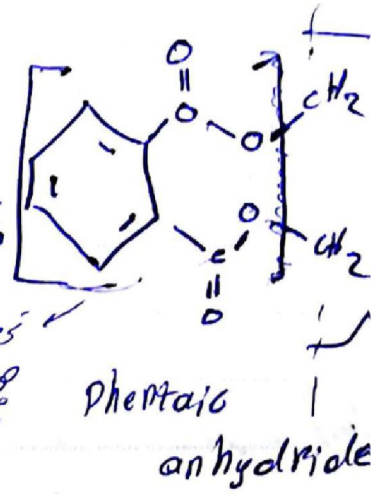 O
O
CH2
O
O
C
CH2
O
phentaic
anhydride